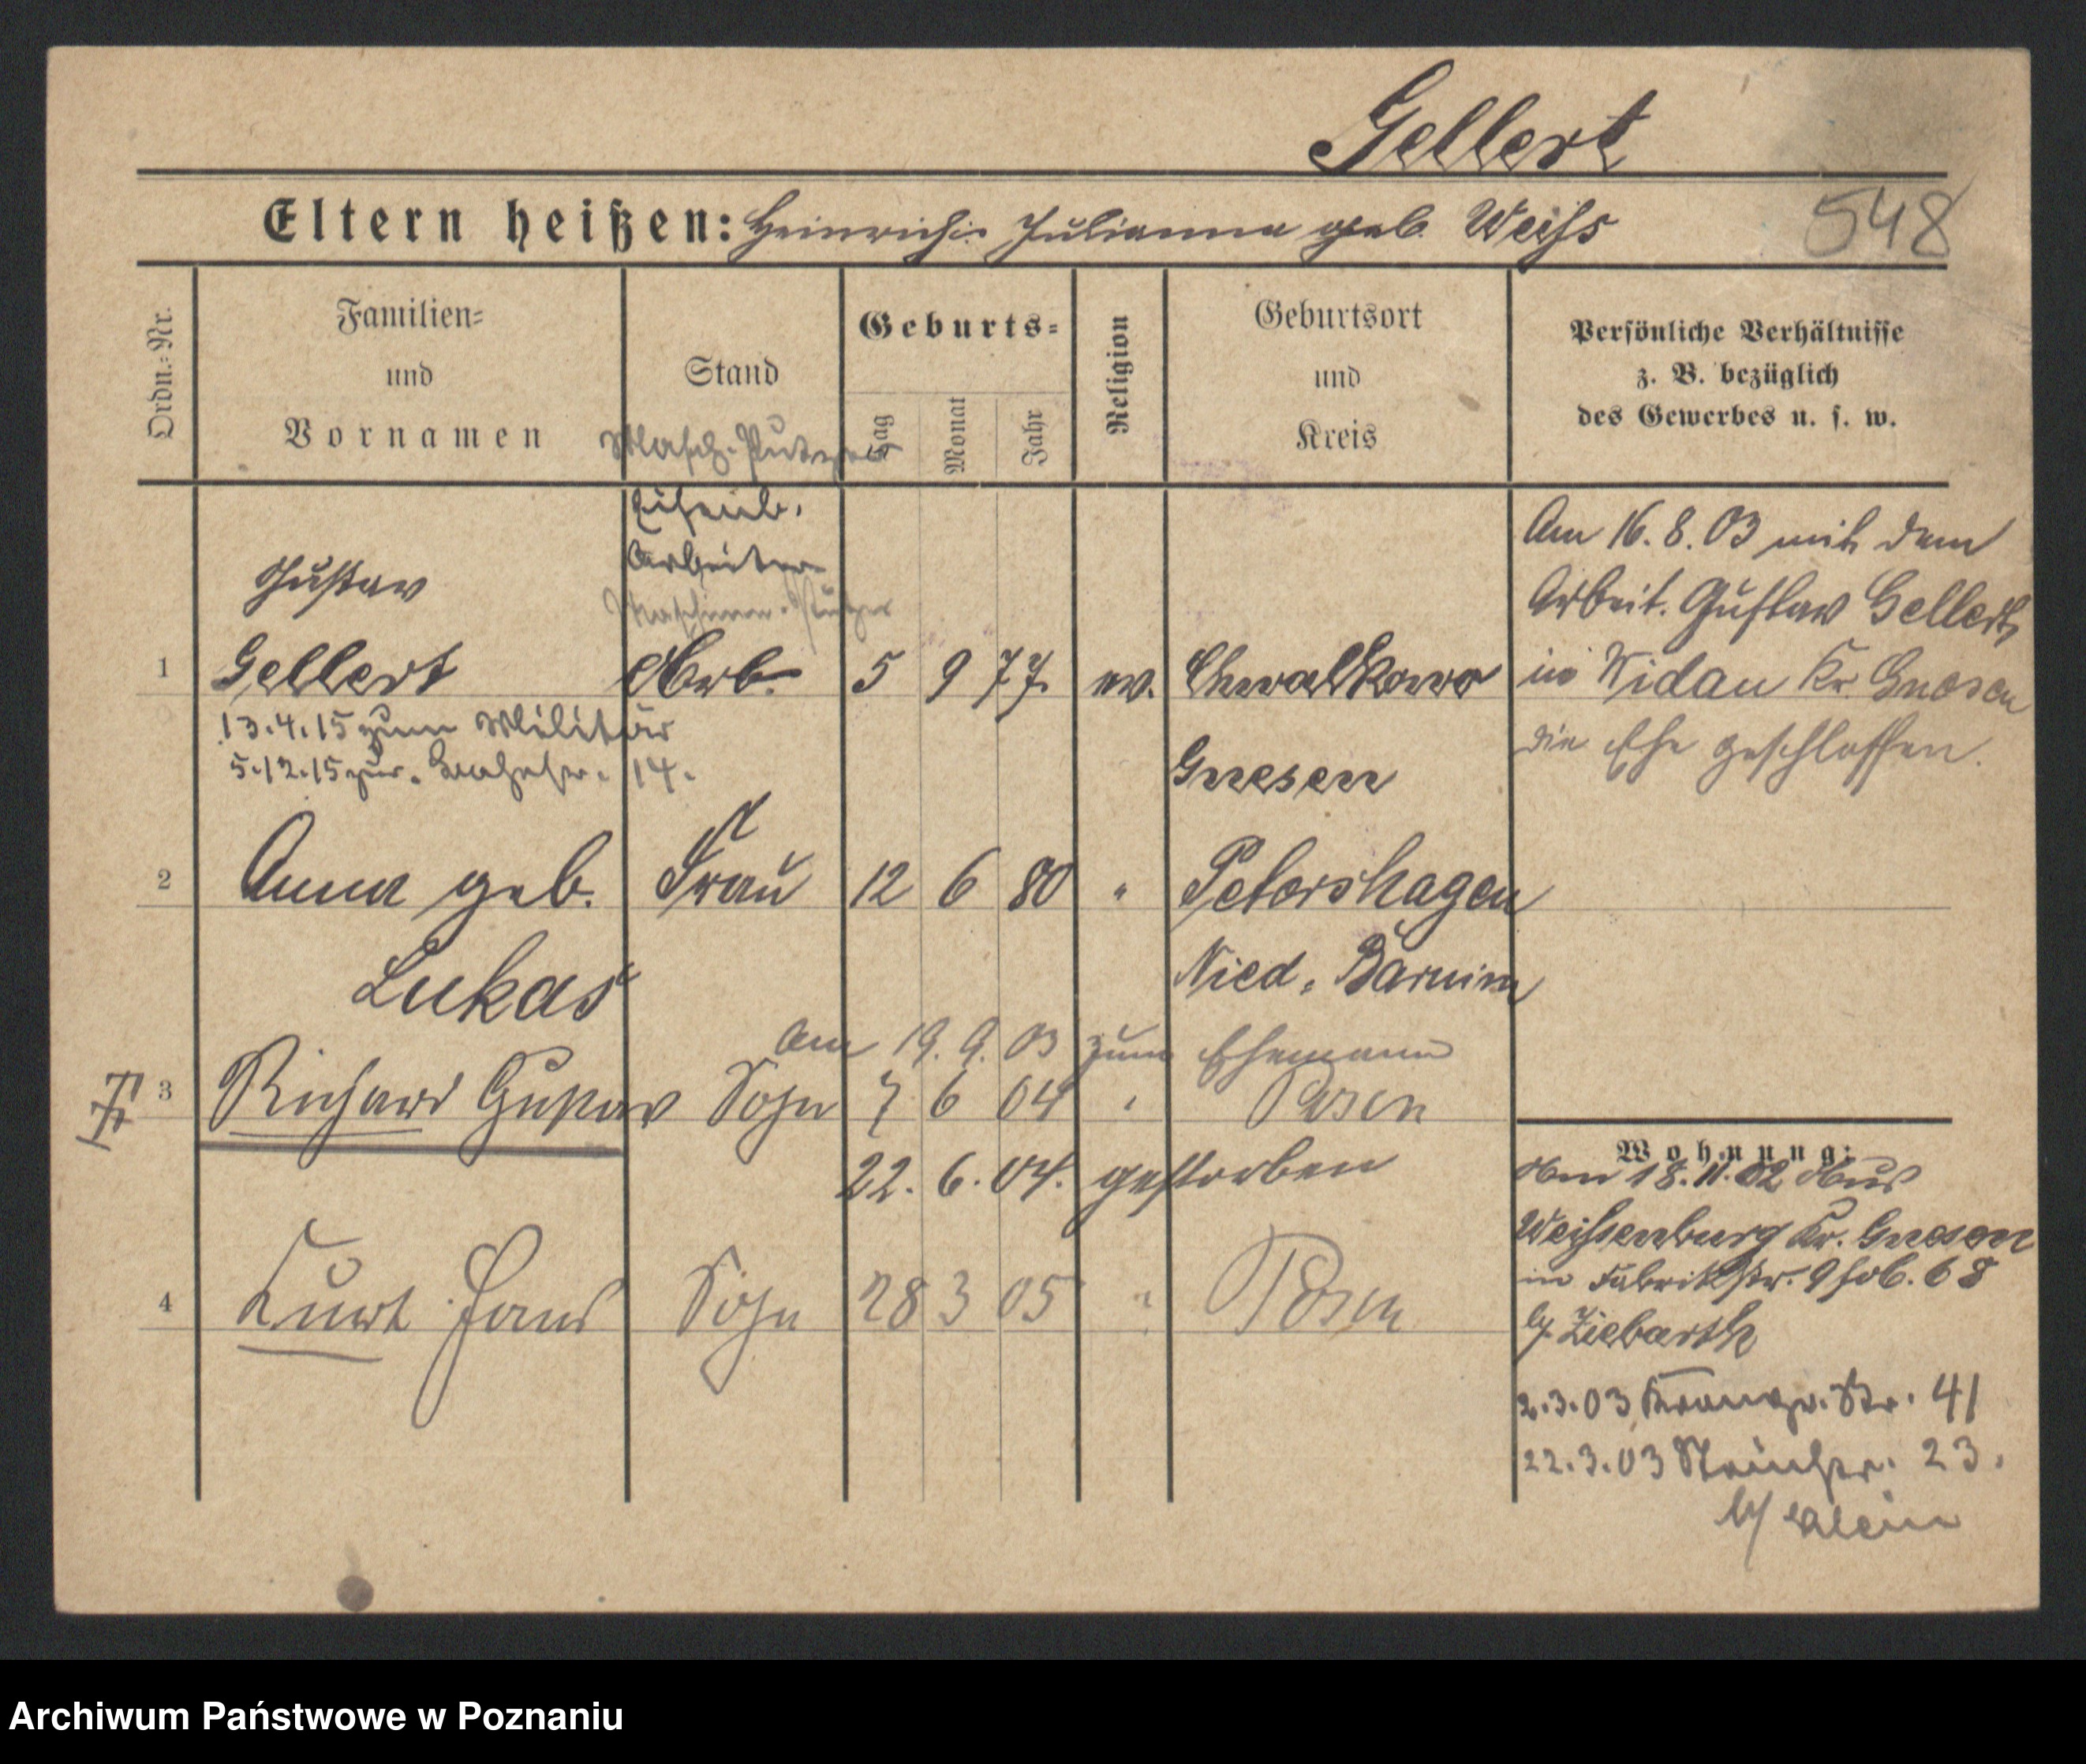 Gellert
548
Eltern heißen: Heinrich u. Julianna geb. Weiss
Ordn.-Nr.
Familien-
und
Vornamen
Stand
Geburts-
Tag
Monat
Jahr
Religion
Geburtsort
und
Kreis
Persönliche Verhältnisse
z. B. bezüglich
des Gewerbes u. s. w.
Masch. Putzer
Eisenb.
Arbeiter
Maschinen-Putzer
1
Gustav
Gellert
Arb.
5 9 77
ev.
Chwalkowo
Gnesen
13.4.15 zum Militär
5.12.15 zur. 14.
Am 16.8.03 mit dem
Arbeit. Gustav Gellert
in Widau Kr. Gnesen
die Ehe geschlossen.
2
Anna geb.
Lukas
Frau
12 6 80
"
Petershagen
Nied. Barnim
Am 19.9.03 zum Ehemann
3
Richard Gustav
Sohn
7 6 04
"
Posen
22.6.04. gestorben
4
Kurt Hans
Sohn
28 3 05
"
Posen
Wohnung:
Am 18.11.02 Aus
Weissenburg Kr. Gnesen
in Fabrikstr. 9 68
b/ Ziebarth
2.3.03 Kronpr. Str. 41
22.3.03 23.
b/ Klein
Archiwum Państwowe w Poznaniu